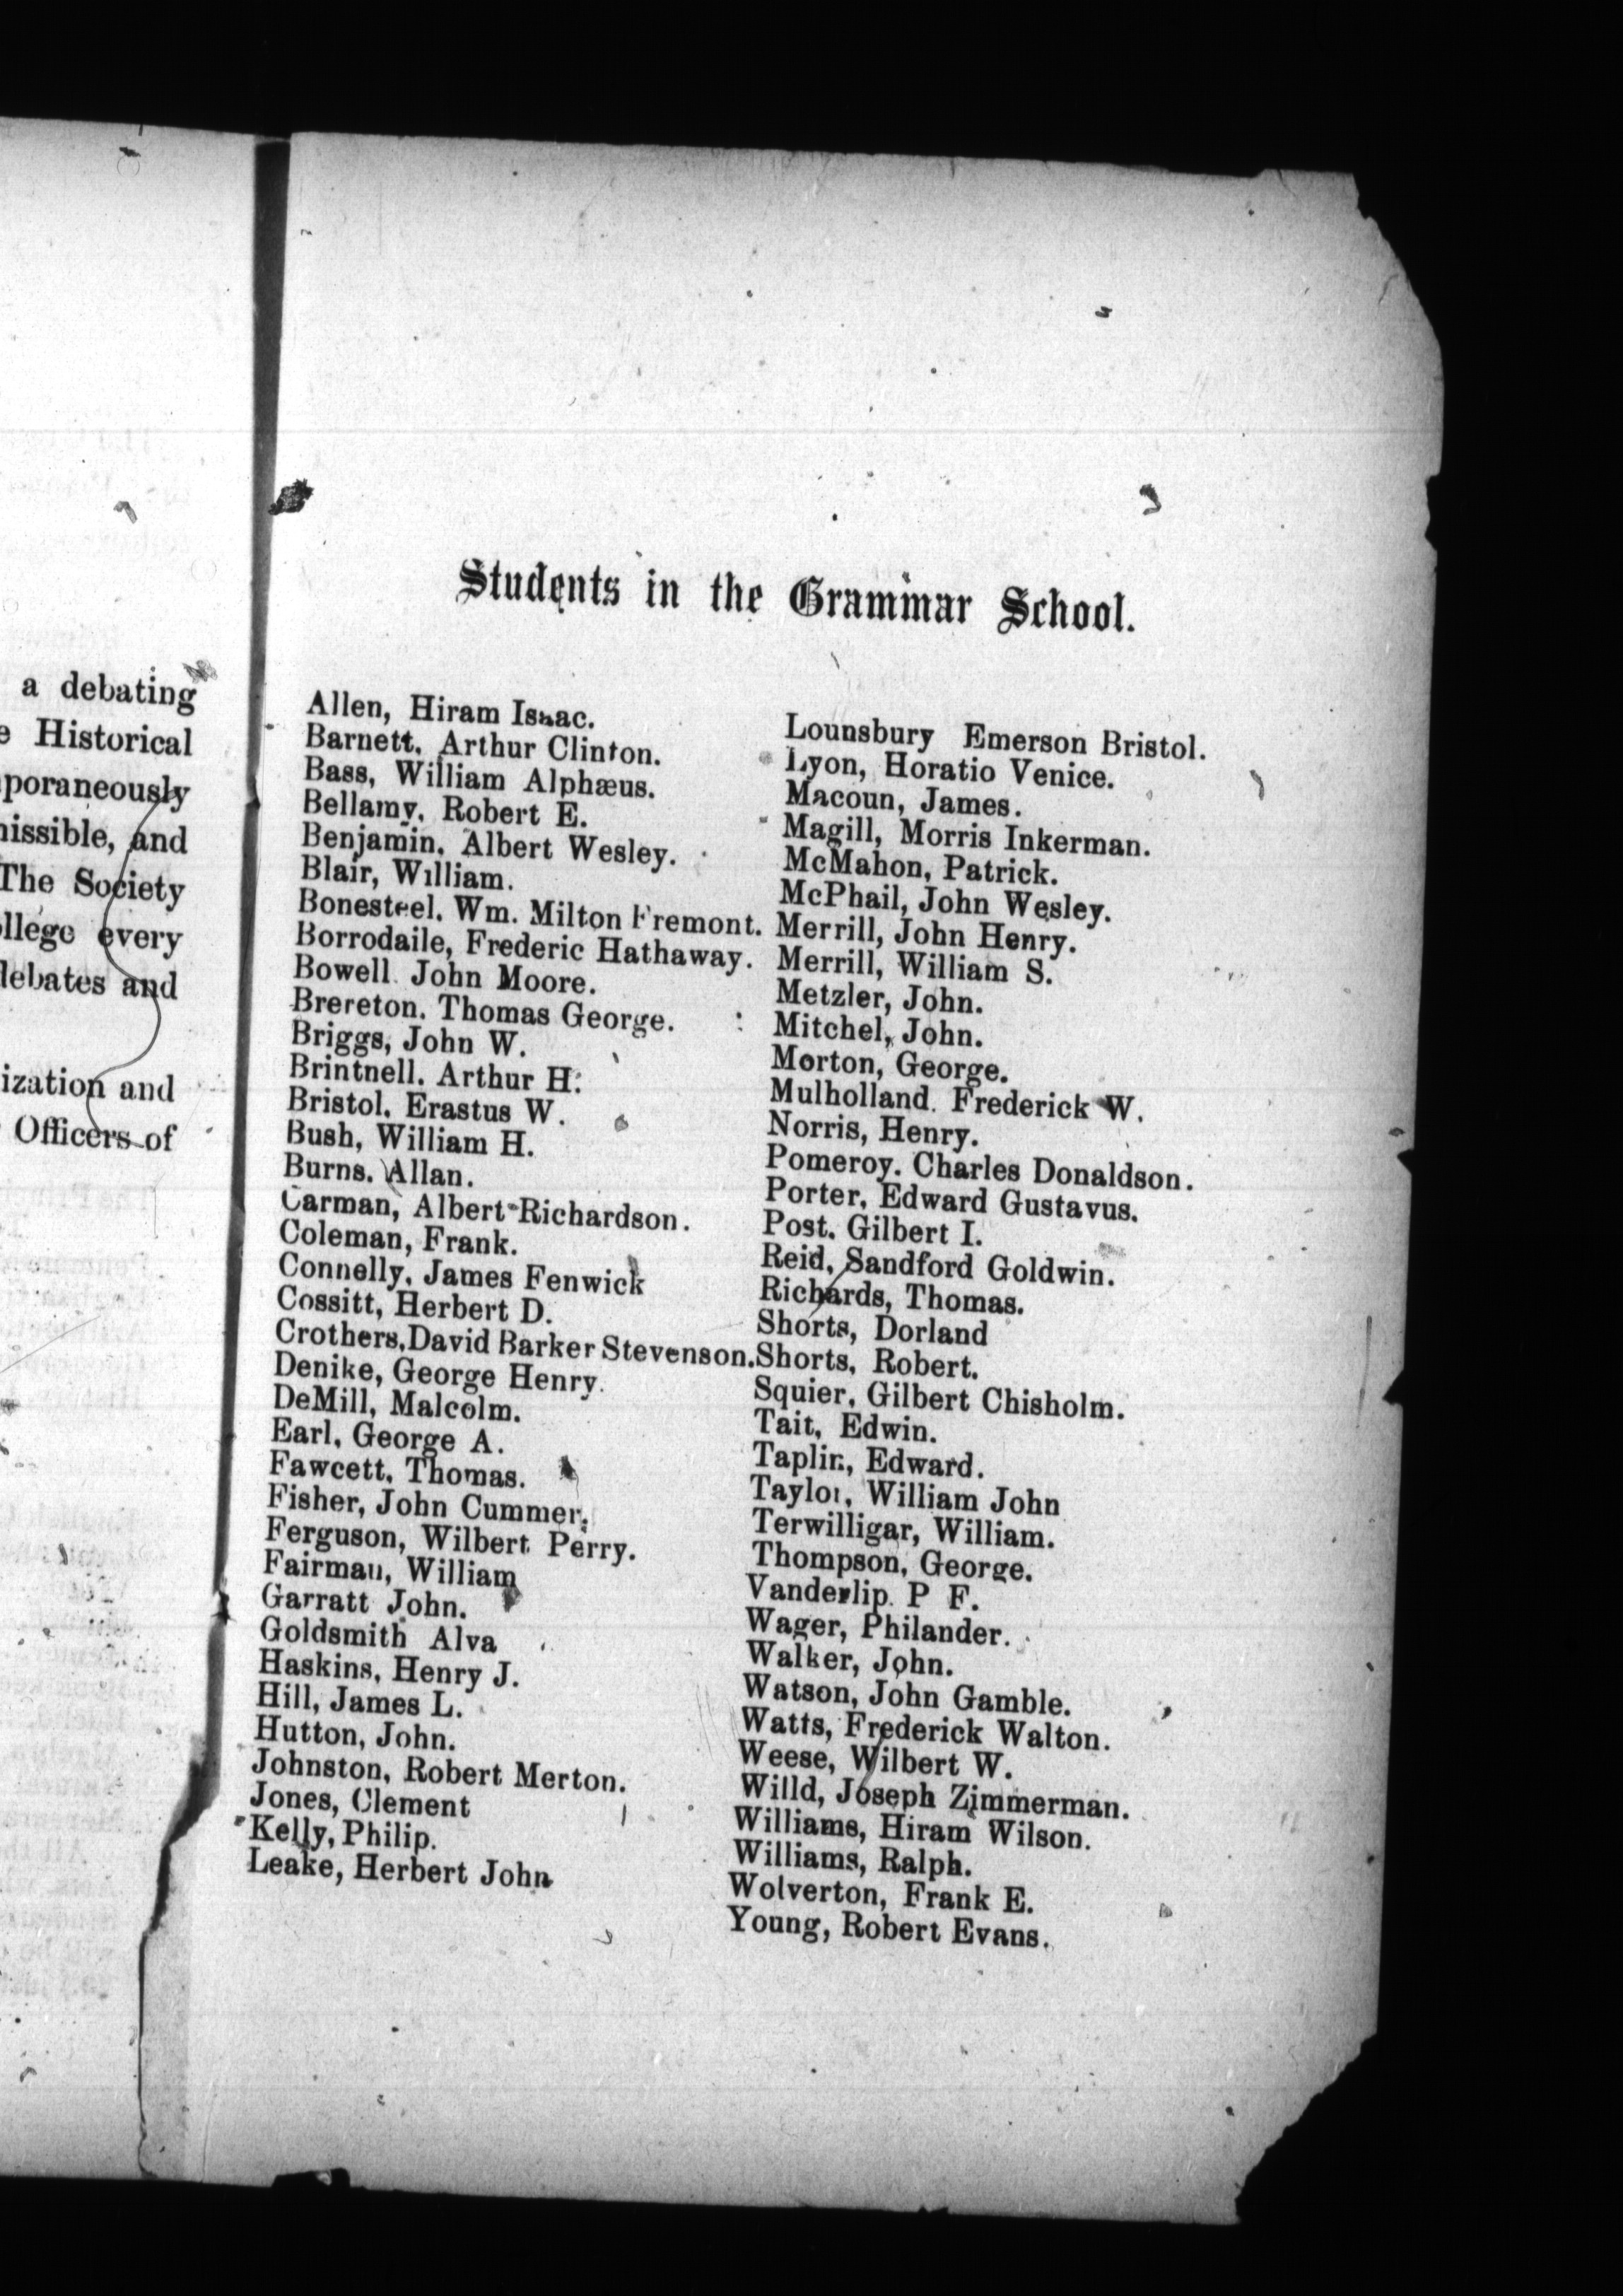 a debating
Historical
poraneously
missible, and
The Society
every
debates and
ization and
Officers of
Students in the Grammar School.
Allen, Hiram Isaac.
Barnett, Arthur Clinton.
Bass, William Alphæus.
Bellamy, Robert E.
Benjamin, Albert Wesley.
Blair, William.
Bonesteel, Wm. Milton Fremont.
Borrodaile, Frederic Hathaway.
Bowell John Moore.
Brereton, Thomas George.
Briggs, John W.
Brintnell, Arthur H.
Bristol, Erastus W.
Bush, William H.
Burns, Allan.
Carman, Albert Richardson.
Coleman, Frank.
Connelly, James Fenwick
Cossitt, Herbert D.
Crothers, David Barker Stevenson.
Denike, George Henry.
DeMill, Malcolm.
Earl, George A.
Fawcett, Thomas.
Fisher, John Cummer.
Ferguson, Wilbert Perry.
Fairman, William
Garratt John.
Goldsmith Alva
Haskins, Henry J.
Hill, James L.
Hutton, John.
Johnston, Robert Merton.
Jones, Clement
Kelly, Philip.
Leake, Herbert John
Lounsbury Emerson Bristol.
Lyon, Horatio Venice.
Macoun, James.
Magill, Morris Inkerman.
McMahon, Patrick.
McPhail, John Wesley.
Merrill, John Henry.
Merrill, William S.
Metzler, John.
Mitchel, John.
Morton, George.
Mulholland, Frederick W.
Norris, Henry.
Pomeroy, Charles Donaldson.
Porter, Edward Gustavus.
Post, Gilbert I.
Reid, Sandford Goldwin.
Richards, Thomas.
Shorts, Dorland
Shorts, Robert.
Squier, Gilbert Chisholm.
Tait, Edwin.
Taplin, Edward.
Taylor, William John
Terwilligar, William.
Thompson, George.
Vanderlip. P F.
Wager, Philander.
Walker, John.
Watson, John Gamble.
Watts, Frederick Walton.
Weese, Wilbert W.
Willd, Joseph Zimmerman.
Williams, Hiram Wilson.
Williams, Ralph.
Wolverton, Frank E.
Young, Robert Evans.